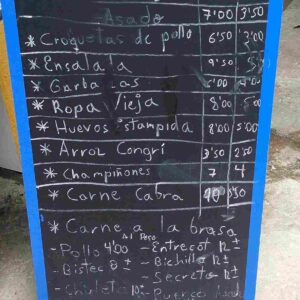 Asado 7'00 3'50
* Croquetas de pollo 6'50 3'00
* Ensalada 9'50
* Garbanzas 4'00
* Ropa Vieja 8'00 5'00
* Huevos Estampida 8'00 5'00
* Arroz Congri 3'50 2'50
* Champiñones 7 4
* Carne Cabra 10 5'50
* Carne a la brasa
- Pollo 4'00 - Entrecot 12 ±
- Bistec 8 ± - Bichillo 12 ±
- Chuleta - Secreto 12 ±
- Puerco